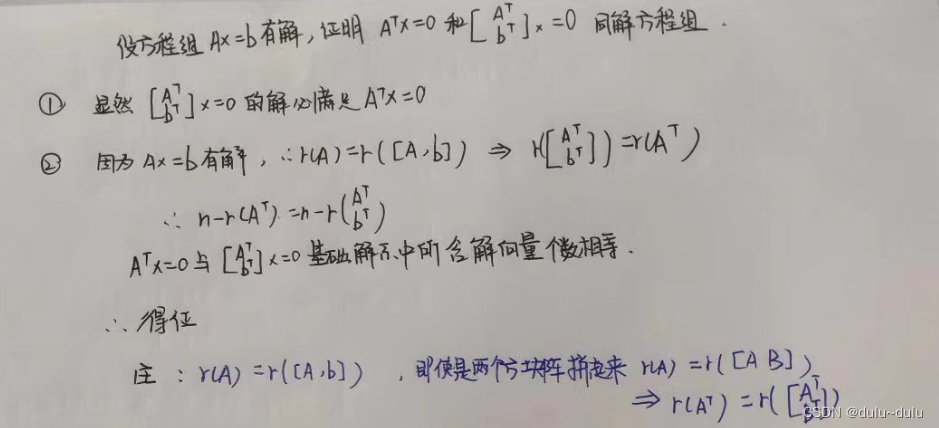 设方程组 Ax=b 有解,证明 Aᵀx=0 和 [Aᵀ bᵀ]x=0 同解方程组.
① 显然 [Aᵀ bᵀ]x=0 的解必满足 Aᵀx=0
② 因为 Ax=b 有解, ∴ r(A)=r([A,b]) ⇒ r([Aᵀ bᵀ])=r(Aᵀ)
∴ n-r(Aᵀ)=n-r(Aᵀ bᵀ)
Aᵀx=0 与 [Aᵀ bᵀ]x=0 基础解系中所含解向量个数相等.
∴ 得证
注: r(A)=r([A,b]) ,即使是两个方块矩阵拼起来 r(A)=r([A B])
⇒ r(Aᵀ)=r([Aᵀ Bᵀ])
CSDN @dulu~dulu